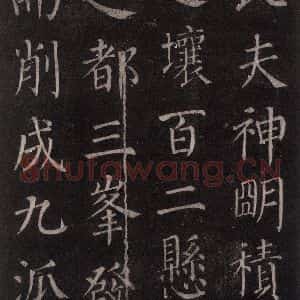 夫神明積
壤百二懸
都三峯
削成九
Shufawang.CN